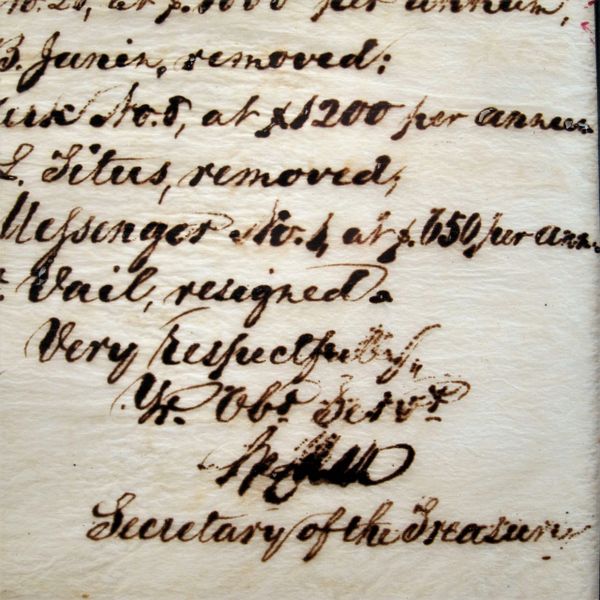 No. 20, at $.1000 per annum,
B. Junin, removed;
No. 8, at $1200 per annum
L. Titus, removed;
Messenger No. 1, at $.650 per ann
Vail, resigned.
Very respectfully,
Yr. Obt Servt
Secretary of the Treasury